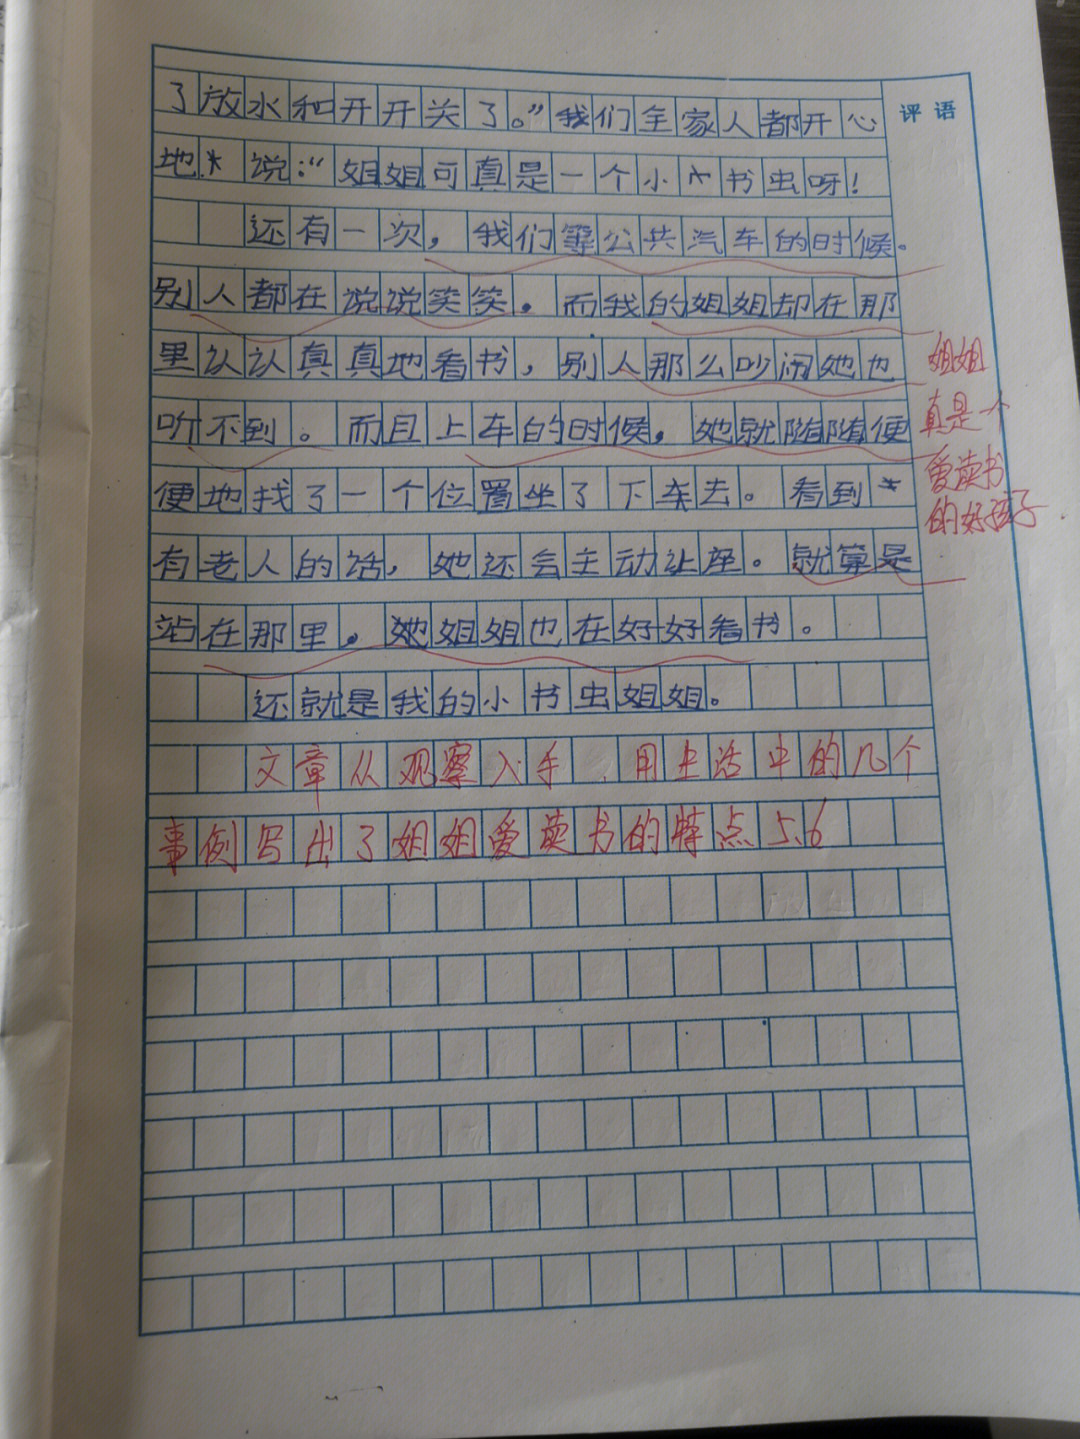 了放水和开开关了。”我们全家人都开心
评语
地说：“姐姐可真是一个小书虫呀！
还有一次，我们等公共汽车的时候。
别人都在说说笑笑。而我的姐姐却在那
里认认真真地看书，别人那么吵闹她也
听不到。而且上车的时候，她就随随便
便地找了一个位置坐了下来去。看到
有老人的话，她还会主动让座。就算是
站在那里，她姐姐也在好好看书。
还就是我的小书虫姐姐。
姐姐
真是一个
爱读书
的好孩子
文章从观察入手，用生活中的几个
事例写出了姐姐爱读书的特点 5.6